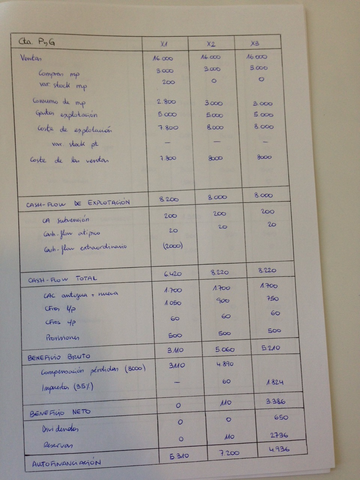 Cta PyG X1 X2 X3
Ventas 16.000 16.000 16.000
Compras mp 3.000 3.000 3.000
var stock mp 200 0 0
Consumo de mp 2.800 3.000 3.000
Gastos explotación 5.000 5.000 5.000
Coste de explotación 7.800 8.000 8.000
var. stock pt — — —
Coste de las ventas 7.800 8000 8000
CASH-FLOW DE EXPLOTACIÓN 8.200 8.000 8.000
CA subvención 200 200 200
Cash-flow atípico 20 20 20
Cash-flow extraordinario (2000)
CASH-FLOW TOTAL 6.420 8.220 8.220
CAC antigua + nueva 1.700 1.700 1.700
CFros l/p 1.050 900 750
CFros c/p 60 60 60
Provisiones 500 500 500
BENEFICIO BRUTO 3.110 5.060 5.210
Compensación pérdidas (8000) 3110 4.890
Impuestos (35%) — 60 1.824
BENEFICIO NETO 0 110 3.386
Dividendos 0 0 650
Reservas 0 110 2736
AUTOFINANCIACIÓN 5.310 7.200 4.936